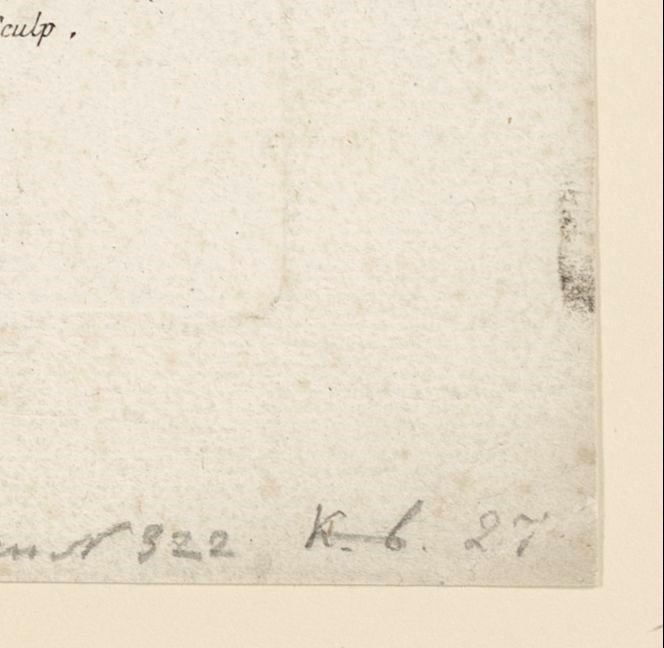 Sculp.
N 322 K. 6. 27